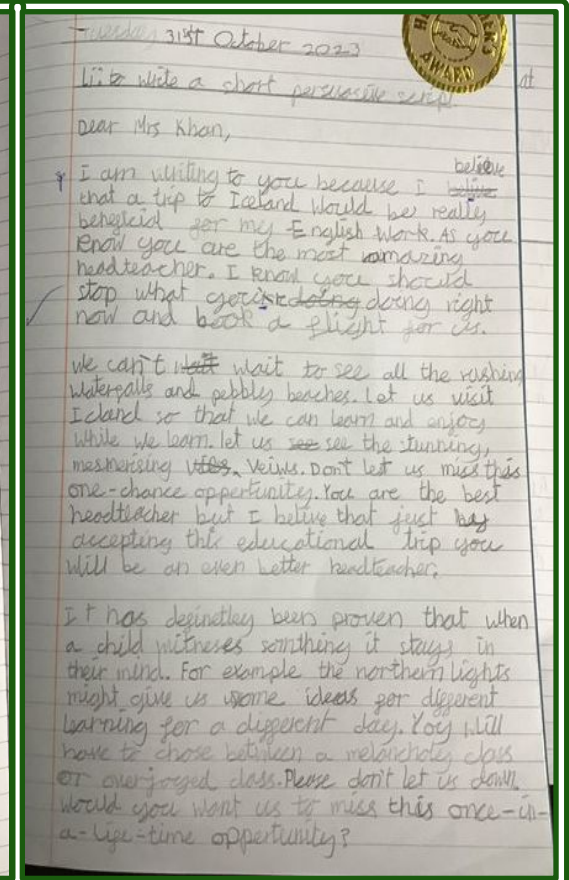 Tuesday 31st October 2023
HEADTEACHER'S
AWARD
at
Li: to write a short persuasive script
Dear Mrs Khan,
believe
I am writing to you because I belive
that a trip to Iceland would be really
beneficial for my English work. As you
know you are the most amazing
headteacher. I know you should
stop what doing doing right
now and book a flight for us.
We can't wait wait to see all the rushing
waterfalls and pebbly beaches. Let us visit
Icland so that we can learn and enjoy
while we learn. let us see see the stunning,
mesmerising Veiws. Dont let us miss this
one-chance opportunity. You are the best
headteacher but I belive that just by
accepting this educational trip you
will be an even better headteacher.
It has definetley been proven that when
a child witneses somthing it stays in
their mind. For example the northern lights
might give us some ideas for different
learning for a different day. You will
have to chose between a melancholy class
or overjoyed class. Please don't let us down.
Would you want us to miss this once-in-
a-life-time opportunity?